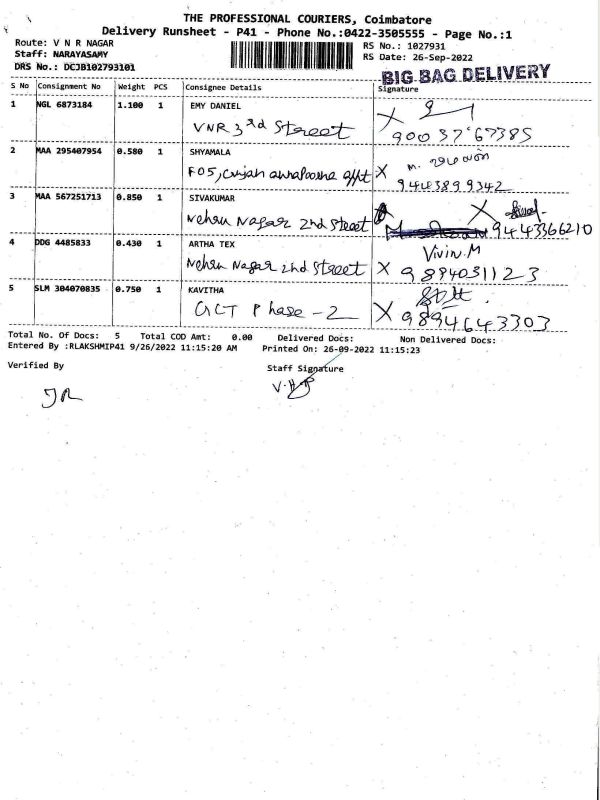 THE PROFESSIONAL COURIERS, Coimbatore
Delivery Runsheet - P41 - Phone No.:0422-3505555 - Page No.:1
Route: V N R NAGAR
Staff: NARAYASAMY
DRS No.: DCJB102793101
RS No.: 1027931
RS Date: 26-Sep-2022
BIG BAG DELIVERY
S No Consignment No Weight PCS Consignee Details Signature
1 NGL 6873184 1.100 1 EMY DANIEL
VNR 3rd Street X 90037 67385
2 MAA 295407954 0.580 1 SHYAMALA
F05, annapoorna appt X 9443899342
3 MAA 567251713 0.850 1 SIVAKUMAR
Nehru Nagar 2nd Street X 9443366210
4 DDG 4485833 0.430 1 ARTHA TEX Vivin.M
Nehru Nagar 2nd Street X 9894031123
5 SLM 304070835 0.750 1 KAVITHA
GCT Phase - 2 X 9894643303
Total No. Of Docs: 5 Total COD Amt: 0.00 Delivered Docs: Non Delivered Docs:
Entered By :RLAKSHMIP41 9/26/2022 11:15:20 AM Printed On: 26-09-2022 11:15:23
Verified By Staff Signature